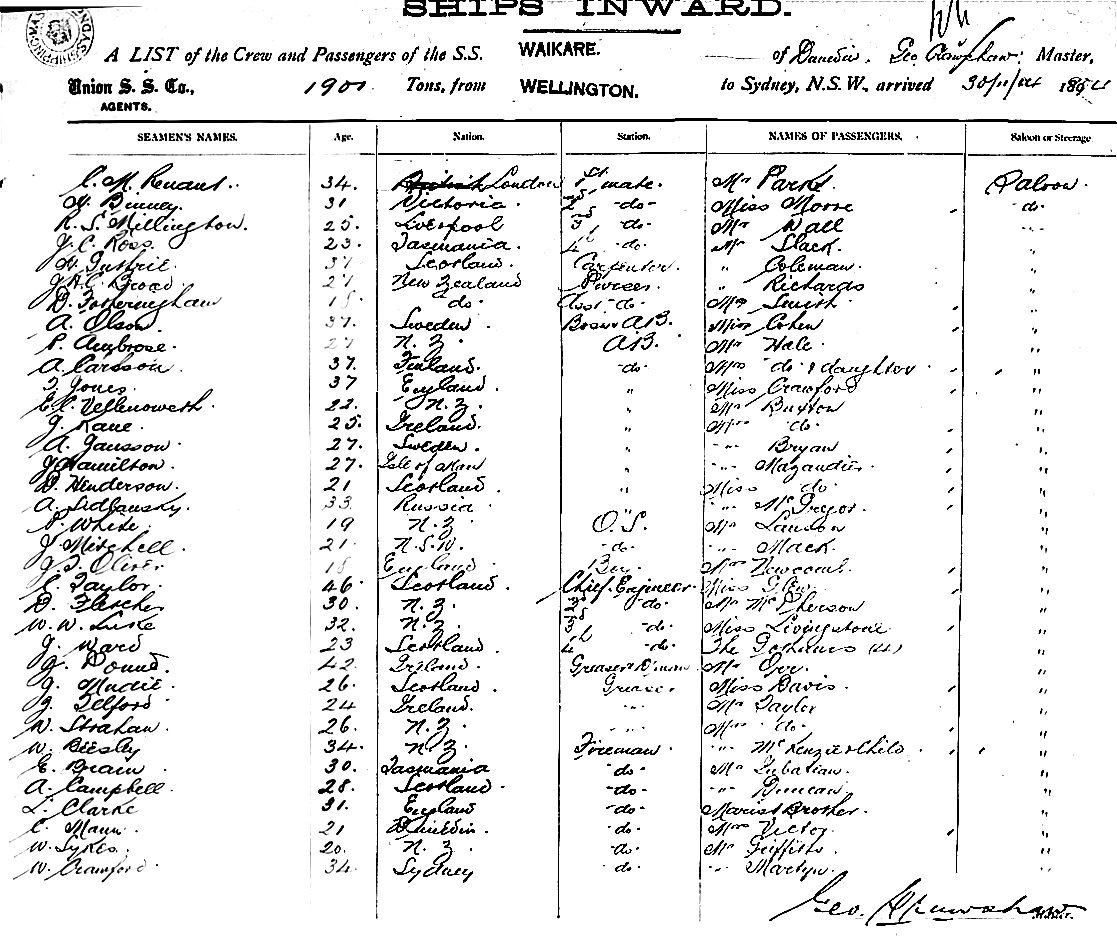 SHIPS INWARD.
A LIST of the Crew and Passengers of the S.S. WAIKARE. of Dunedin, Geo. Crawshaw, Master,
Union S. S. Co., AGENTS. 1901 Tons, from WELLINGTON. to Sydney, N.S.W., arrived 30/11/04 1894
SEAMEN'S NAMES. Age. Nation. Station. NAMES OF PASSENGERS. Saloon or Steerage
C. M. Renaut. 34. British London 1st mate. Mr Park. Saloon.
W. Binney. 31 Victoria. 2nd -do- Miss Moore , do.
R. S. Millington. 25. Liverpool 3rd do- Mr Wall " "
J. C. Ross. 23. Tasmania. 4th -do. Mr Slack. "
W. Guthrie. 37 Scotland. Carpenter. " Coleman "
J. H. C. Broad. 27 New Zealand Purser. " Richards "
D. Fotheringham 18 do. Asst do. Mr Smith "
A. Olson. 37. Sweden Bosun AB. Miss Cohen "
P. Ambrose. 27 N. Z. AB. Mr Hale "
A. Carlsson. 37. Finland. -do- Mrs do & daughter "
T. Jones. 37 England " Miss Crawford "
E. C. Vellenoweth. 22. N. Z. " Mr Buxton "
J. Kane. 25. Ireland. " Mrs do. "
A. Jansson. 27. Sweden. " " Bryan "
J. Hamilton. 27. Isle of Man " "
D. Henderson. 21 Scotland " Miss do. "
A. Sidlausky. 33 Russia " " McGregor "
P. White. 19 N. Z. O.S. Mr "
J. Mitchell. 21. N.S.W. -do- " Mack. "
J. T. Oliver. 18 England Boy. Mrs Newcomb. "
C. Taylor. 46 Scotland. Chief Engineer. Miss "
D. Fletcher 30. N. Z. 2nd -do- Mr McPherson "
W. W. Luke 32. N. Z. 3rd -do- Miss Livingstone "
J. Ward 23 Scotland 4th -do- The (4) "
J. Pound. 42 Ireland. Greaser D'man Mr Orr. "
J. Mudie. 26. Scotland Greaser Miss Davis. "
J. Telford. 24 Ireland. " Mr Taylor "
W. Strahan. 26. N. Z. " Mrs do. "
W. Beesly 34. N. Z. Fireman " McKenzie & Child "
E. Brain 30. Tasmania do- Mr "
A. Campbell. 28. Scotland -do- " Duncan. "
L. Clarke 31. England -do- Marist Brother. "
C. Mann. 21 Dunedin. -do- Mrs Victor "
W. Sykes. 20. N. Z. do- Mr Griffiths. "
W. Crawford 34. Sydney -do- " Martyn. "
Geo. Crawshaw
Master.